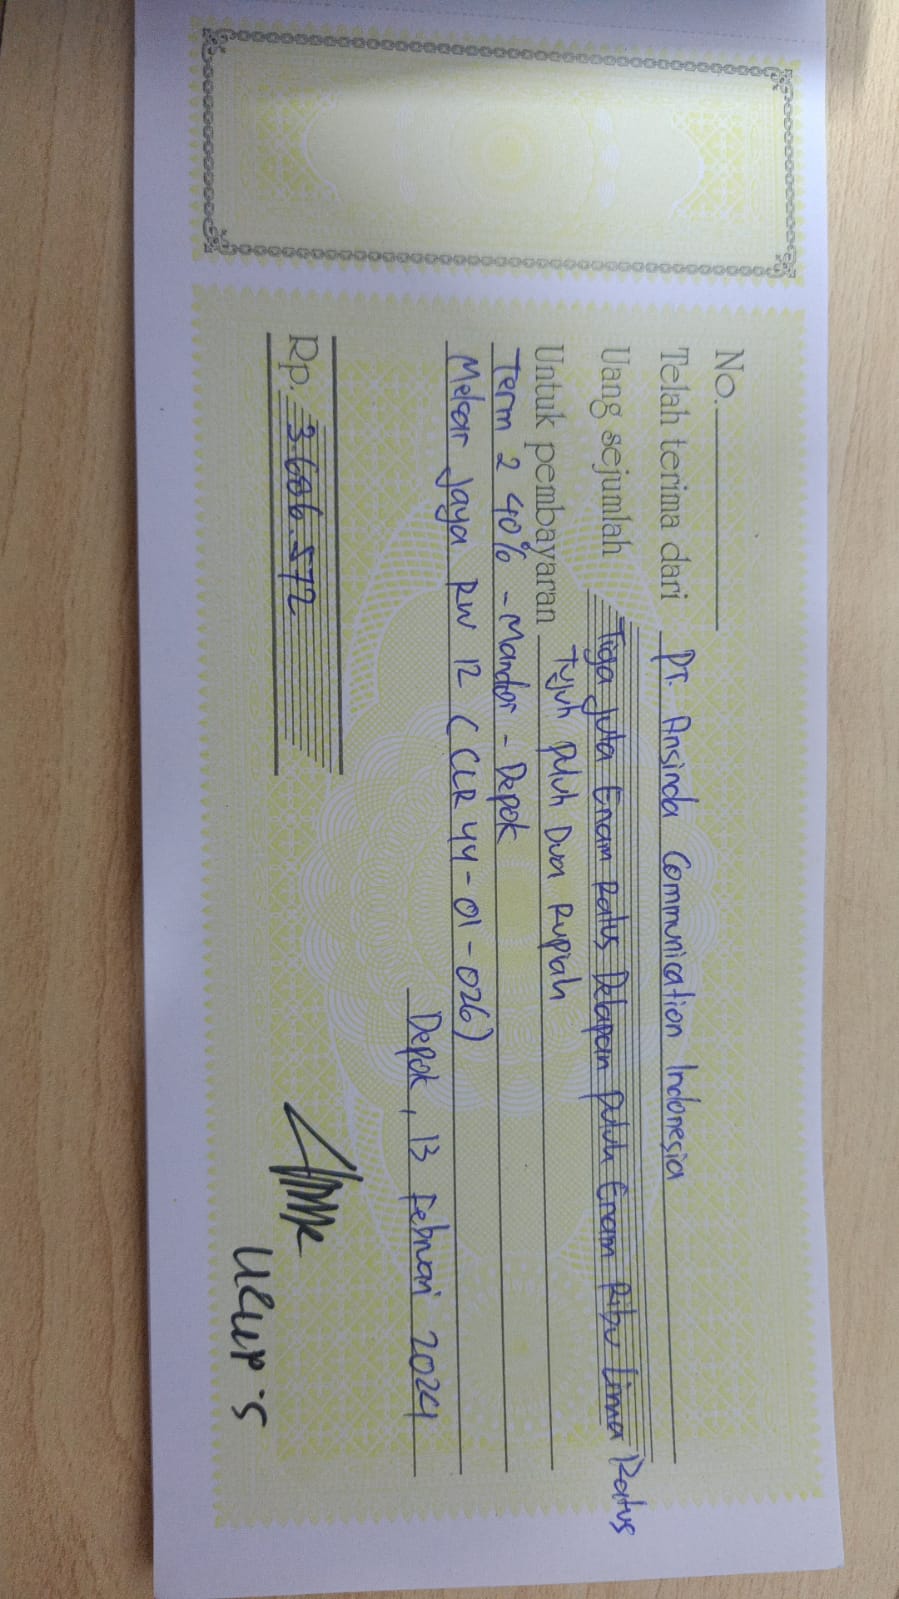 No.
Telah terima dari PT. Ansinda Communication Indonesia
Uang sejumlah Tiga Juta Enam Ratus Delapan puluh Enam Ribu Lima Ratus
Tujuh puluh Dua Rupiah
Untuk pembayaran
Term 2 40% - Mandor - Depok
Mekar Jaya RW 12 (CLR 44-01-026)
Depok, 13 Februari 2024
Rp. 3.686.572
Ucup.S